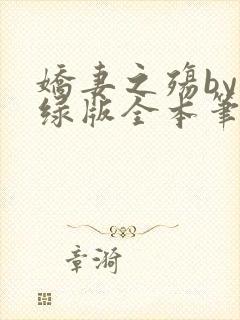 娇妻之殇by
绿版全本笔
章漪